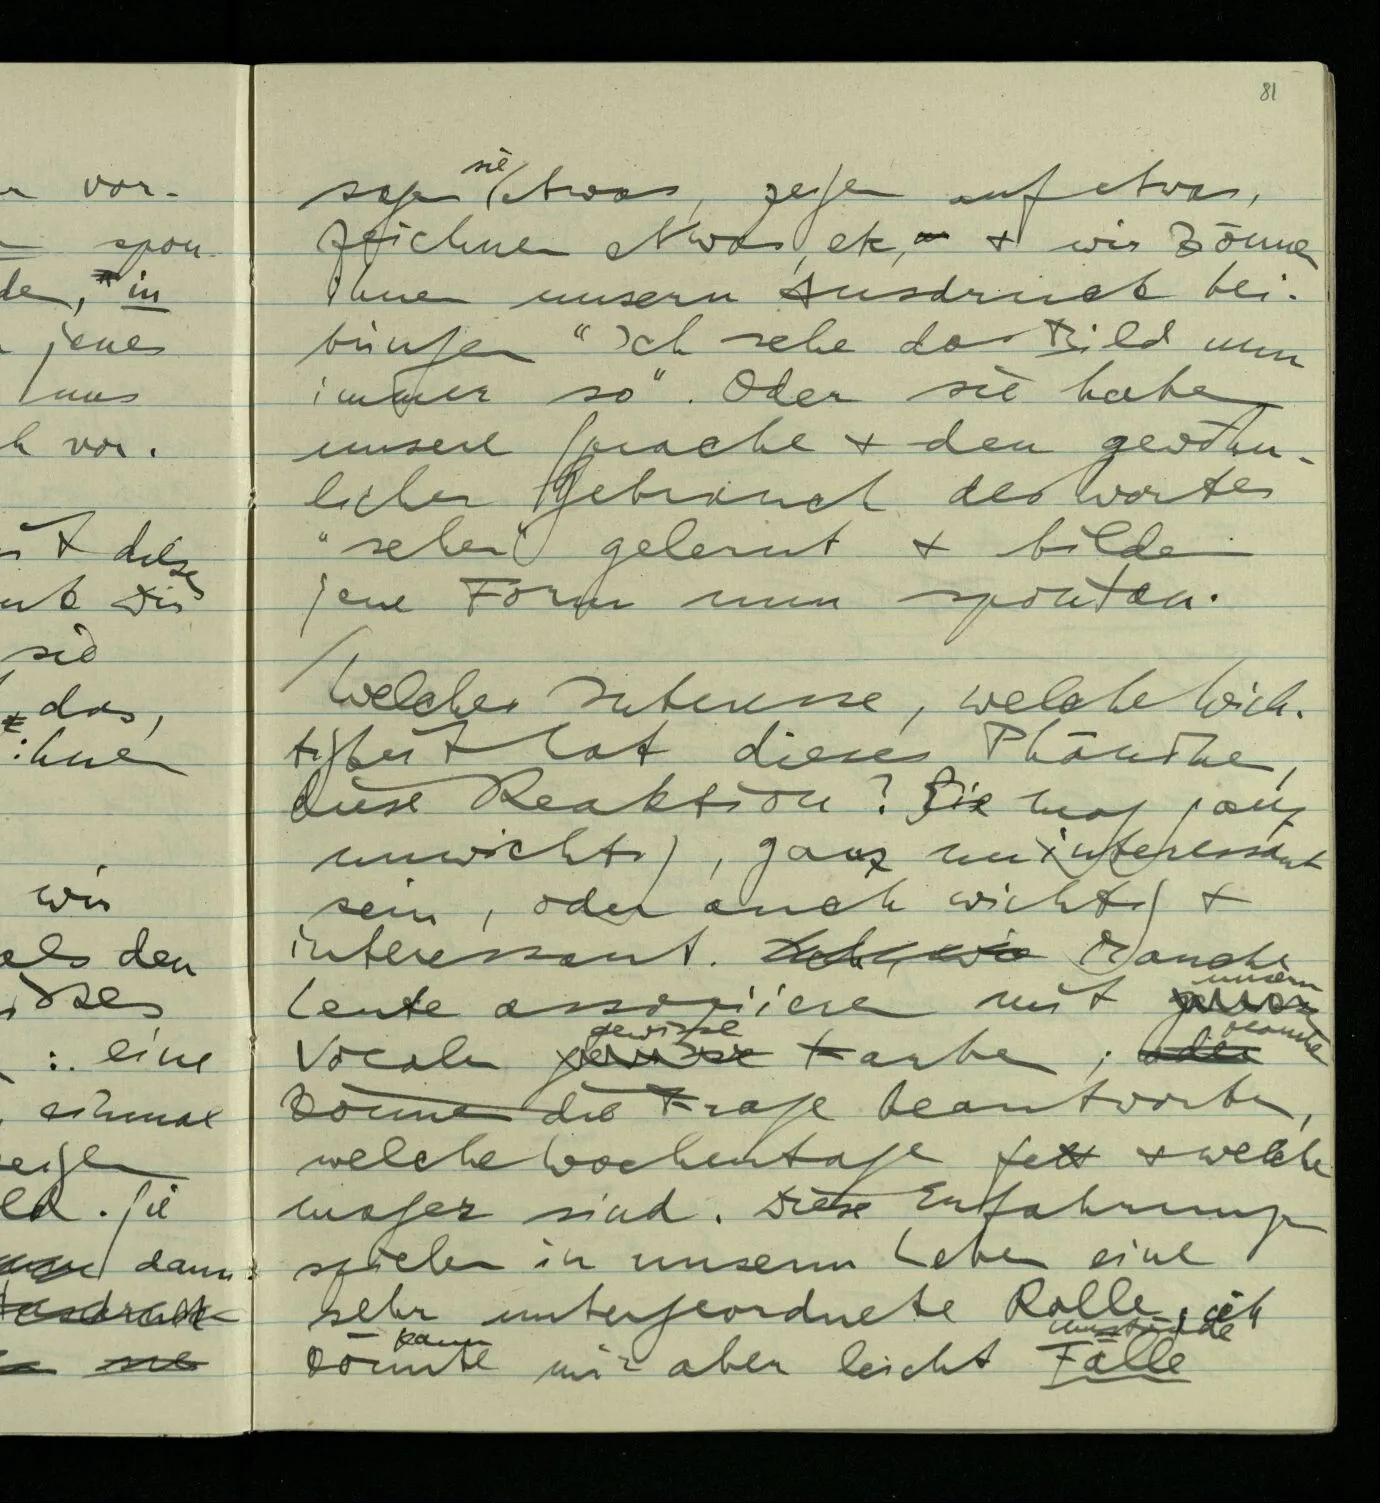 81
r vor-
spon-
den, in
jenes
uns
h vor.
mit diese
sie
das,
ihnen
wir
als den
: eine
einmal
zeigen
ld. Sie
dann
Ausdruck
sie
sagen sie etwas, zeigen auf etwas,
zeichnen etwas, etc, + wir können
ihnen unsern Ausdruck bei-
bringen “Ich sehe das Bild nun
immer so”. Oder sie haben
unsere Sprache + den gewöhn-
lichen Gebrauch des Wortes
“sehen” gelernt + bilden
jene Form nun spontan.
/ Welches Interesse, welche Wich-
tigkeit hat dieses Phänomen,
diese Reaktion? Sie mag ganz
unwichtig, ganz uninteressant
sein, oder auch wichtig +
interessant. Manche
Leute assoziieren mit unsern
Vocalen gewisse Farben; manche
können die Frage beantworten,
welche Wochentage fett + welche
mager sind. Diese Erfahrungen
spielen in unserm Leben eine
sehr untergeordnete Rolle, ich
kann könnte mir aber leicht Umstände Fälle